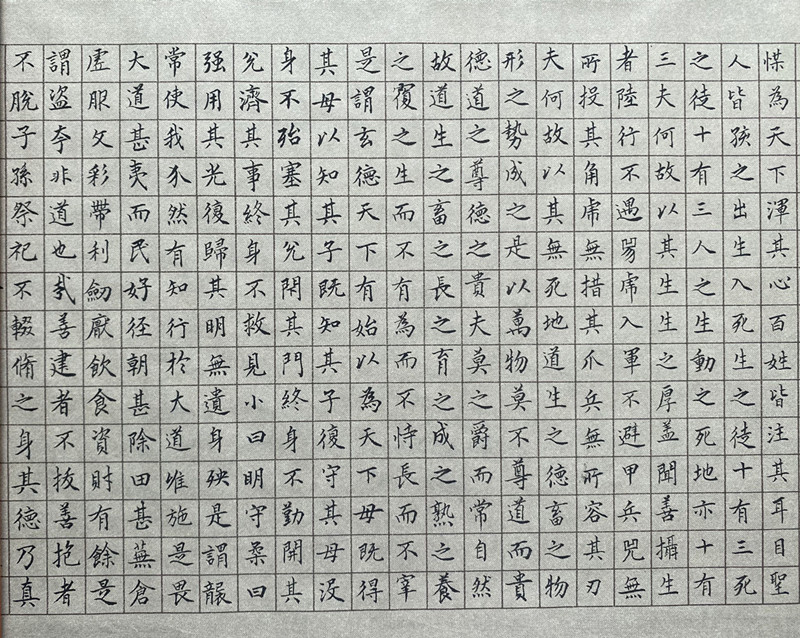 惵為天下渾其心百姓皆注其耳目聖
人皆孩之出生入死生之徒十有三死
之徒十有三人之生動之死地亦十有
三夫何故以其生生之厚盖聞善攝生
者陸行不遇兕虎入軍不避甲兵兕無
所投其角虎無措其爪兵無所容其刃
夫何故以其無死地道生之德畜之物
形之勢成之是以萬物莫不尊道而貴
德道之尊德之貴夫莫之爵而常自然
故道生之畜之長之育之成之熟之養
之覆之生而不有為而不恃長而不宰
是謂玄德天下有始以為天下母既得
其母以知其子既知其子復守其母没
身不殆塞其兌閉其門終身不勤開其
兌濟其事終身不救見小曰明守柔曰
强用其光復歸其明無遺身殃是謂襲
常使我介然有知行於大道唯施是畏
大道甚夷而民好徑朝甚除田甚蕪倉
虚服文彩帶利劒厭飲食資財有餘是
謂盗夸非道也哉善建者不拔善抱者
不脫子孫祭祀不輟脩之身其德乃真